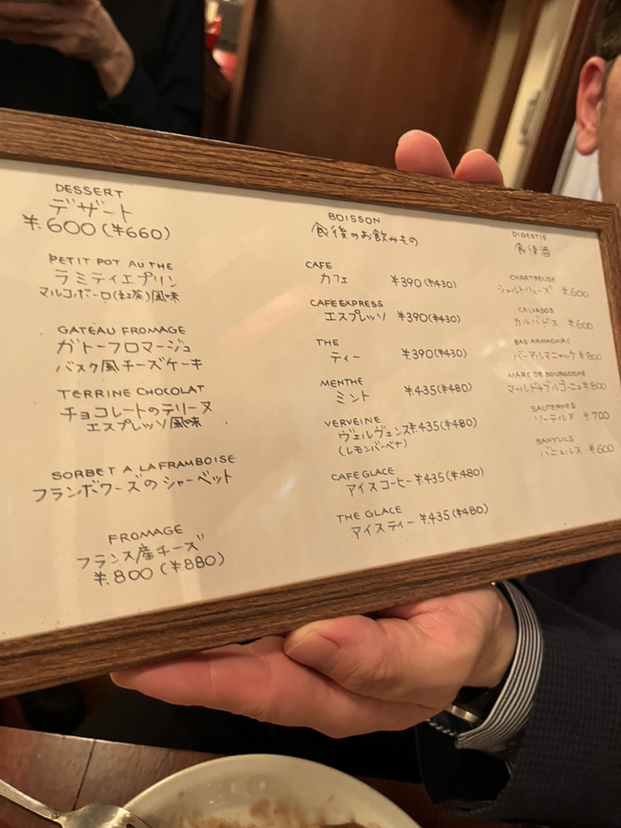 DESSERT
デザート
¥.600(¥660)
PETIT POT AU THE
ラミティエプリン
マルコポーロ(紅茶)風味
GATEAU FROMAGE
ガトーフロマージュ
バスク風チーズケーキ
TERRINE CHOCOLAT
チョコレートのテリーヌ
エスプレッソ風味
SORBET A LA FRAMBOISE
フランボワーズのシャーベット
FROMAGE
フランス産チーズ
¥.800(¥880)
BOISSON
食後のお飲みもの
CAFE
カフェ ¥390(¥430)
CAFE EXPRESS
エスプレッソ ¥390(¥430)
THE
ティー ¥390(¥430)
MENTHE
ミント ¥.435(¥480)
VERVEINE
ヴェルヴェンヌ¥.435(¥480)
(レモンバーベナ)
CAFE GLACE
アイスコーヒー ¥.435(¥480)
THE GLACE
アイスティー ¥.435(¥480)
DIGESTIF
食後酒
CHARTREUSE
シャルトリューズ ¥.600
CALVADOS
カルバドス ¥.600
BAS ARMAGNAC
バーアルマニャック ¥.800
MARC DE BOURGOGNE
マールドゥブルゴーニュ ¥.800
SAUTERNES
ソーテルヌ ¥.700
BANYULS
バニュルス ¥.600